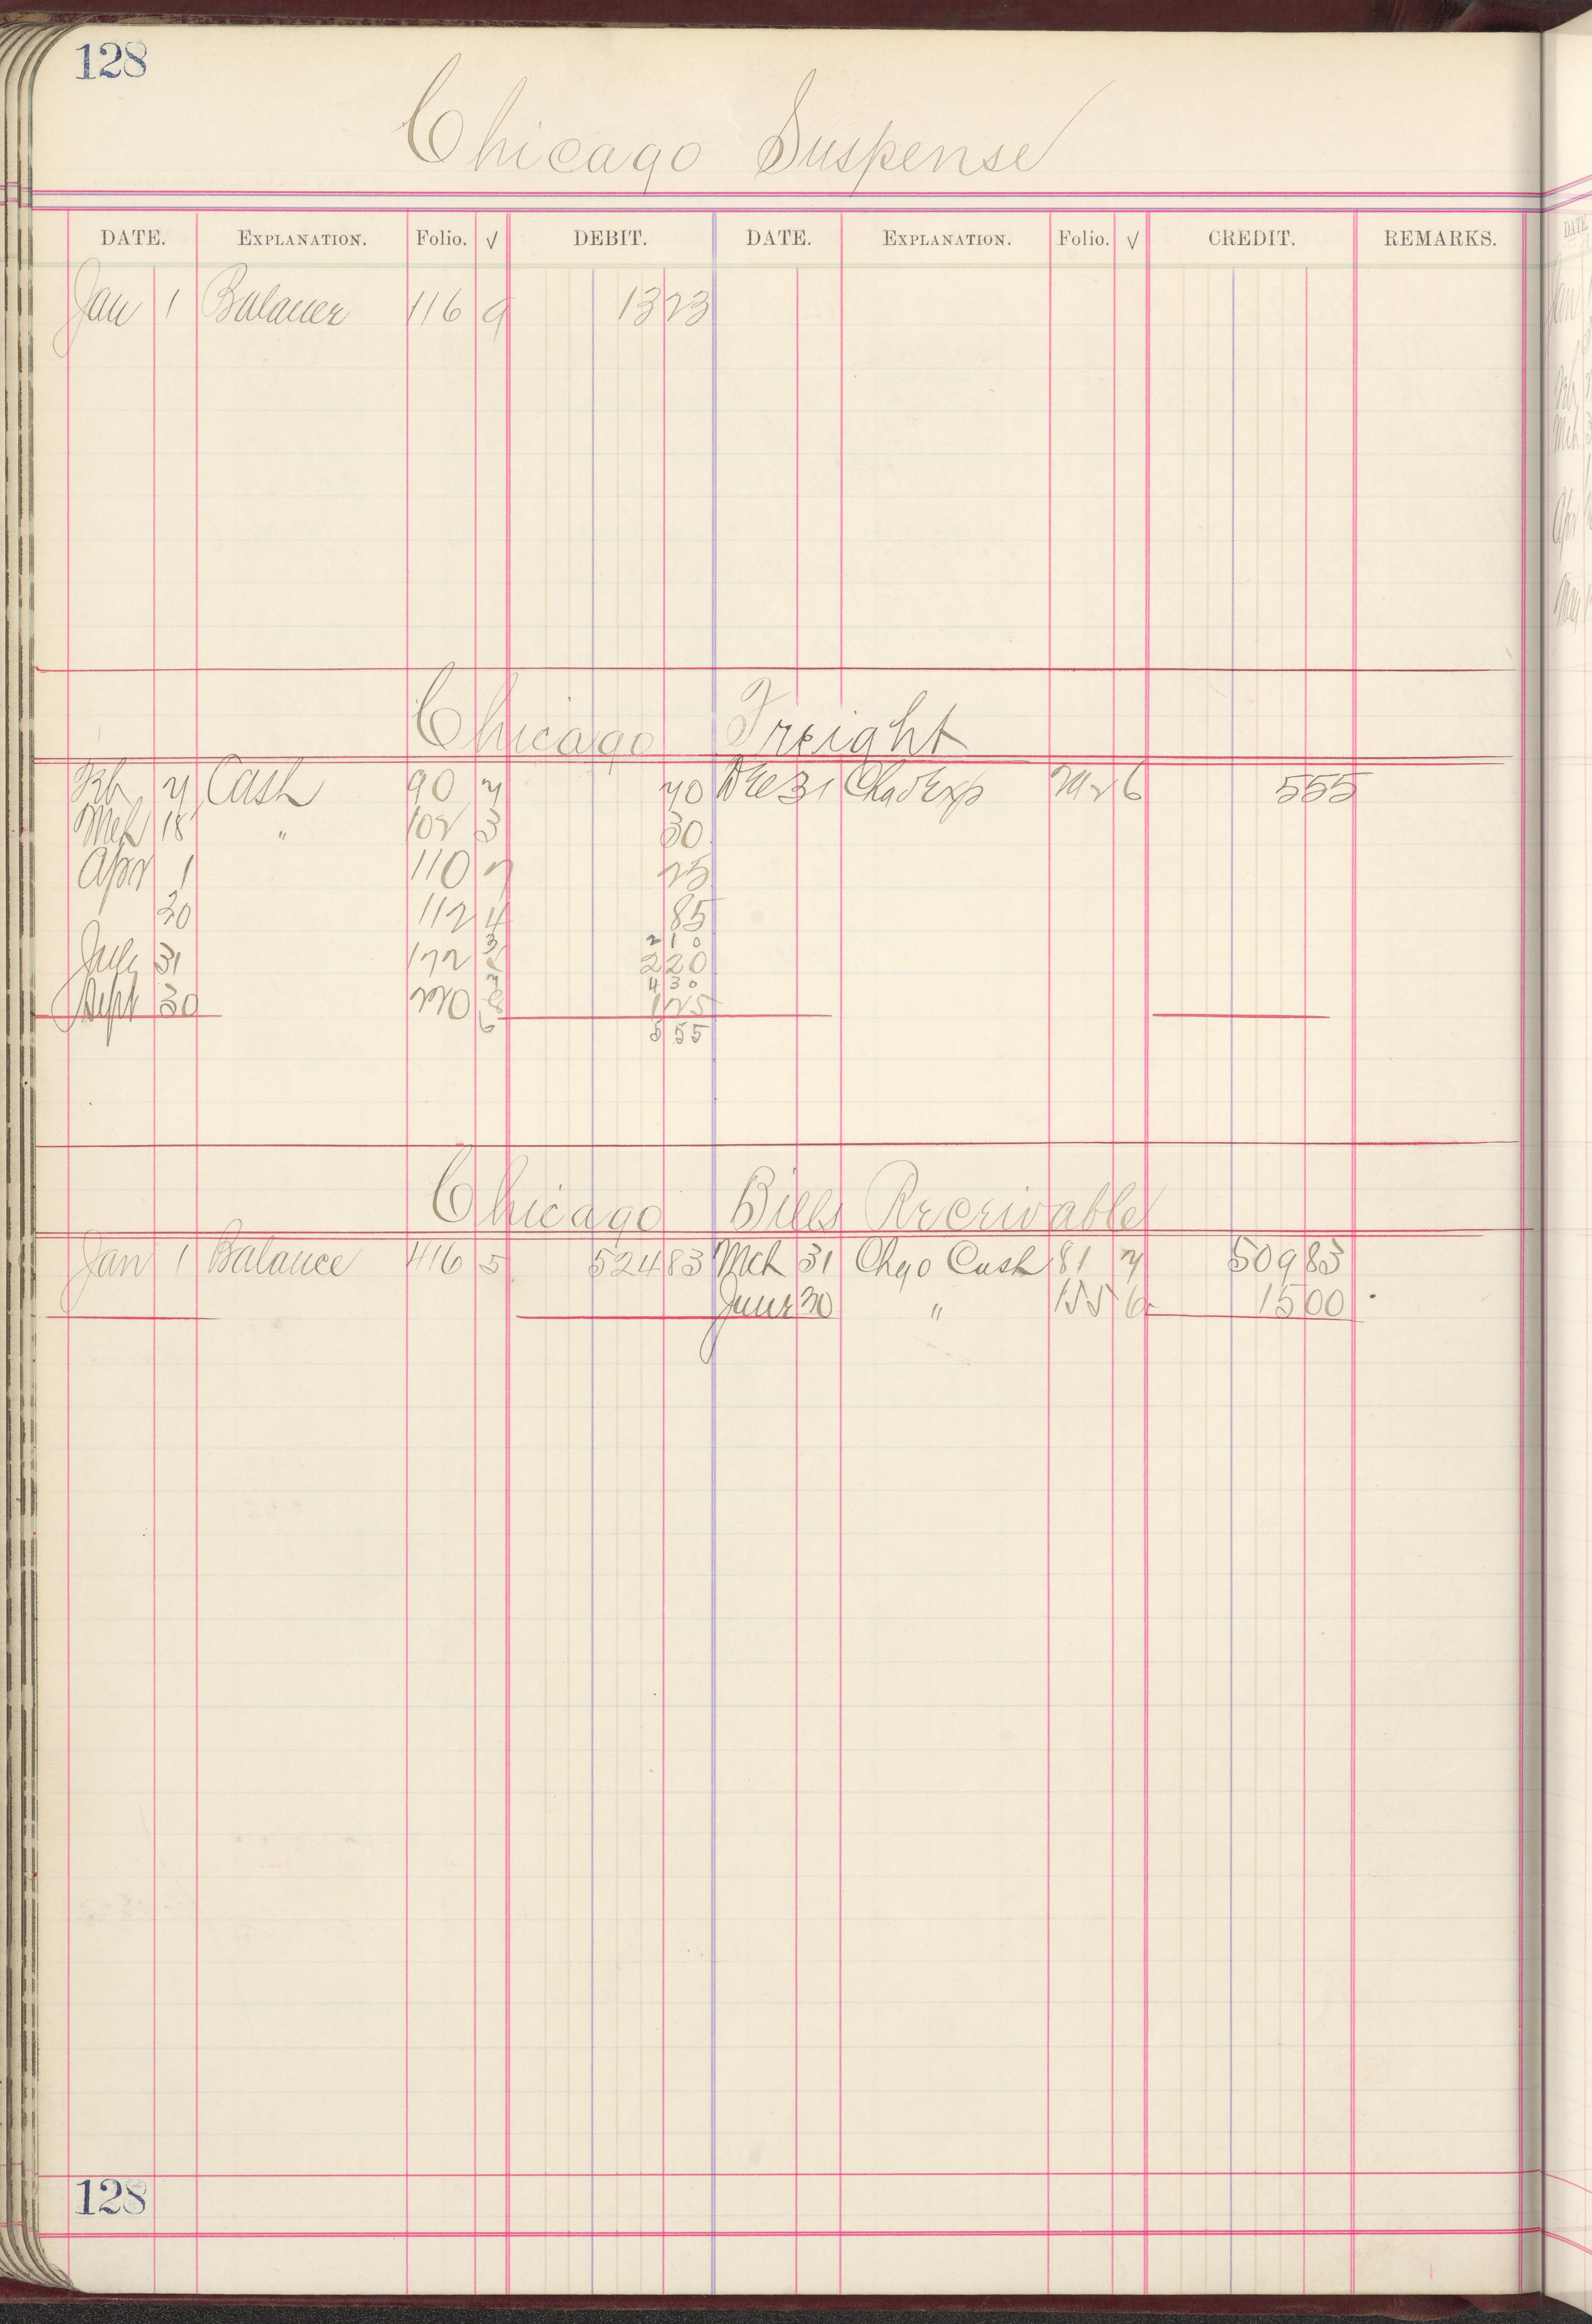 128
Chicago Suspense
DATE. EXPLANATION. Folio. √ DEBIT. DATE. EXPLANATION. Folio. √ CREDIT. REMARKS.
Jan 1 Balance 116 9 13 23
Chicago Freight
Feb Cash 90 Dec 31 6 5 55
Mch 18 " 102 3 30
Apr 1 110 25
20 112 4 85
2 10
July 31 172 2 20
4 30
Sept 30 1 25
5 55
Chicago Bills Receivable
Jan 1 Balance 416 5 524 83 Mch 31 Chgo Cash 81 509 83
June 30 " 155 6 15 00
128